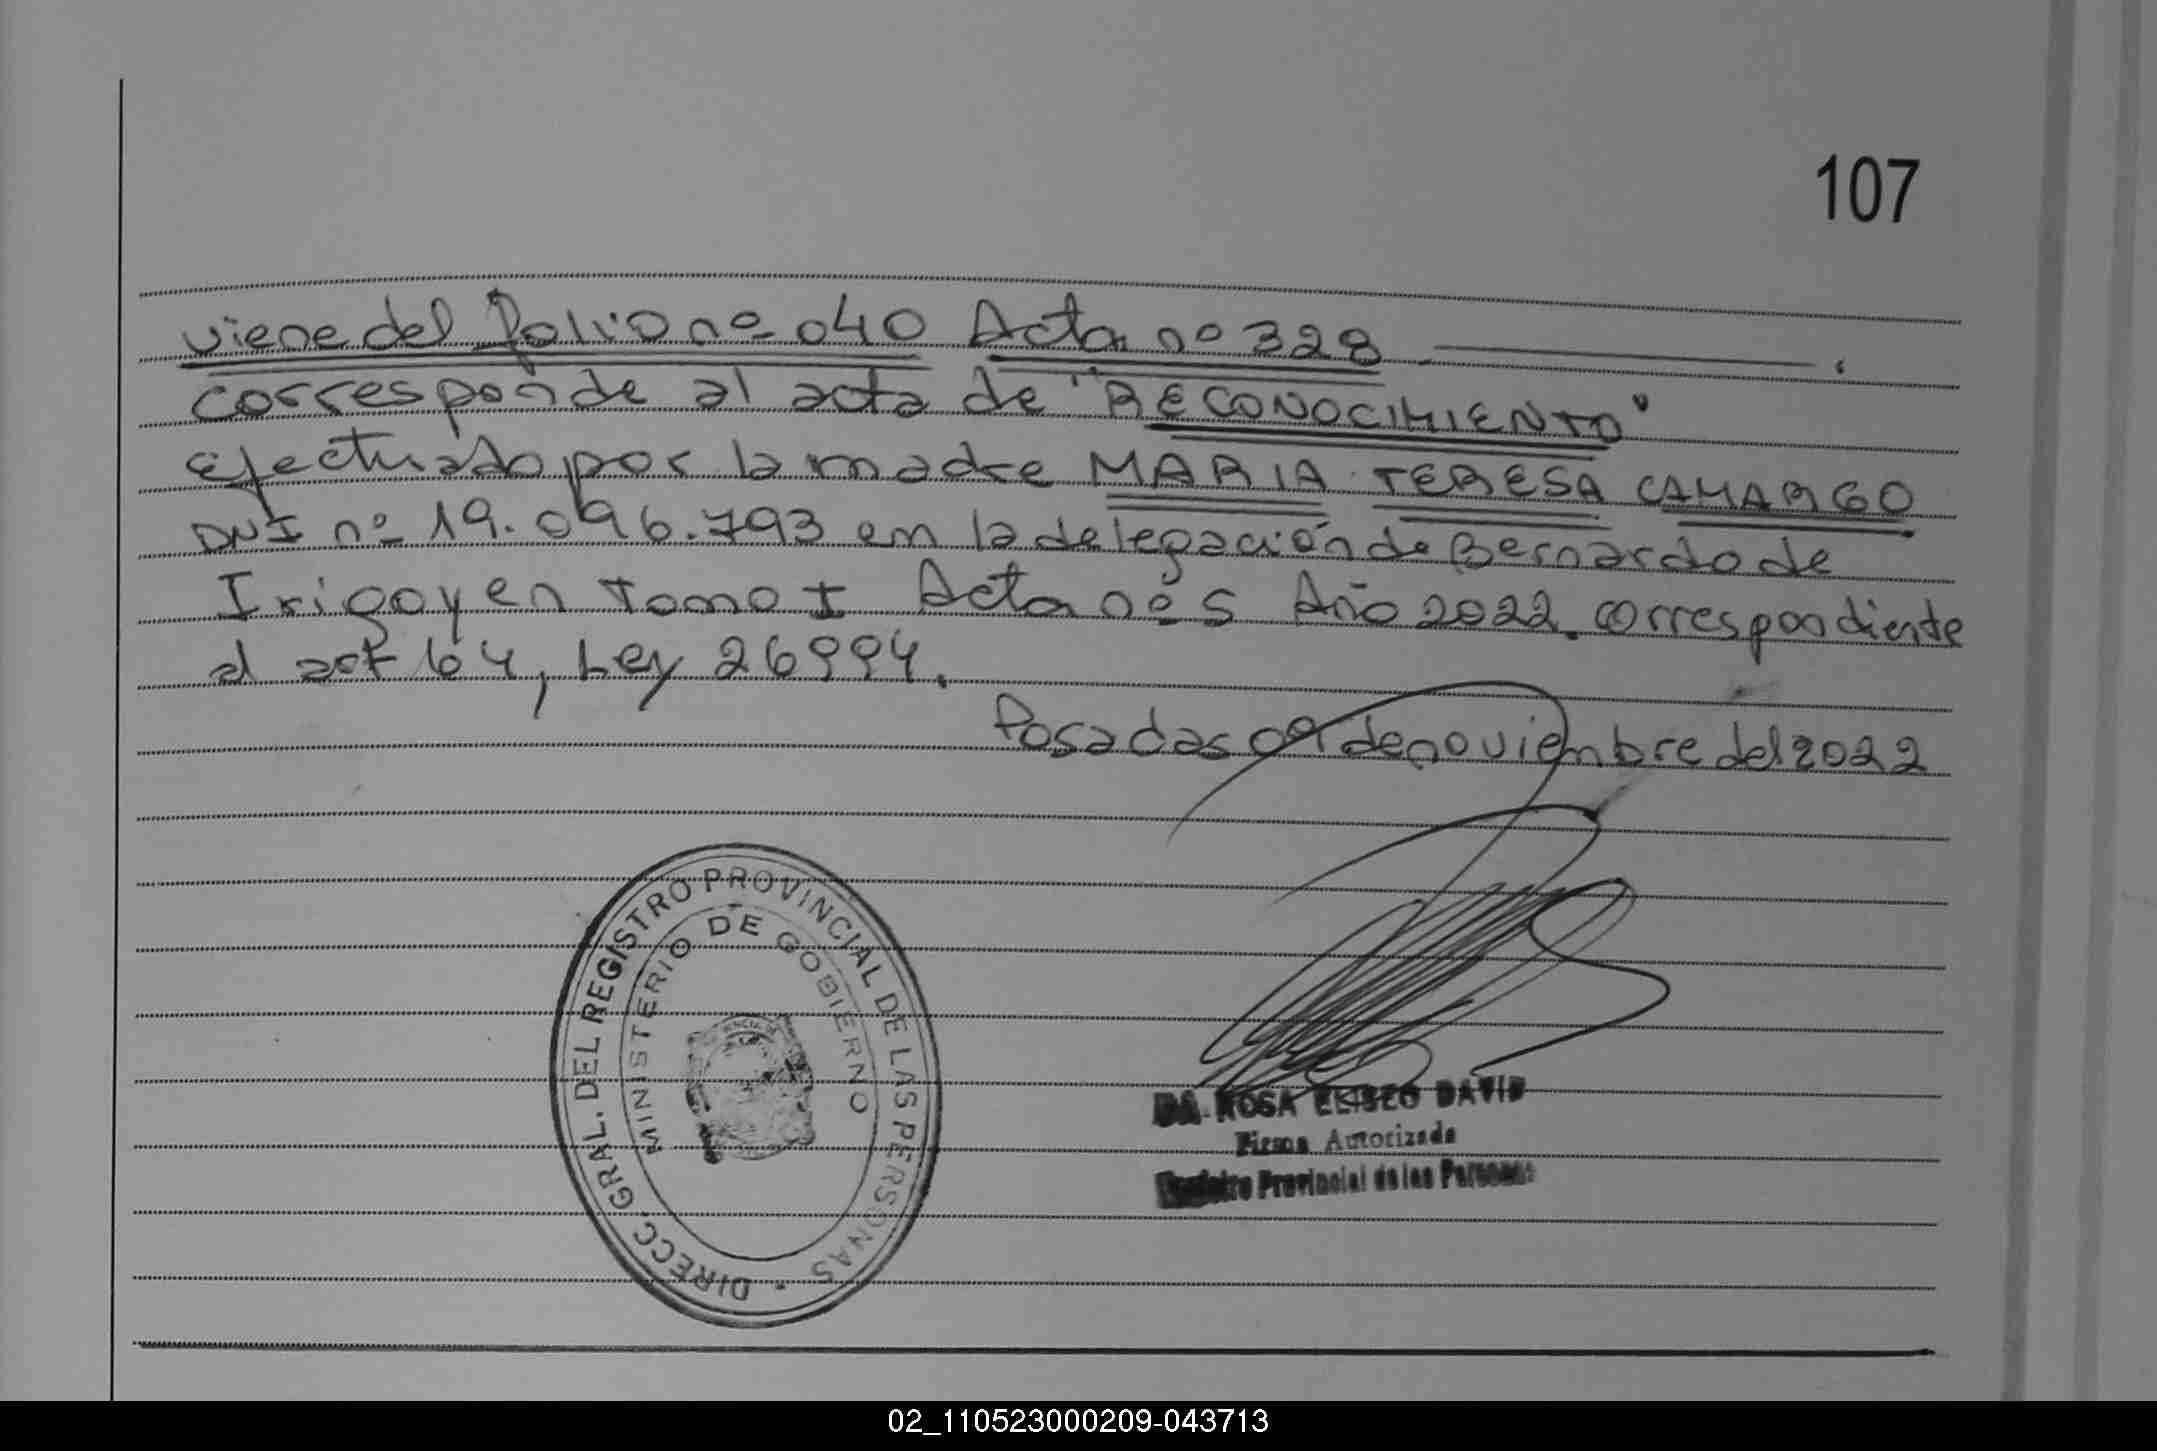 107
viene del folio nº 040 Acta nº 328
corresponde al acta de "RECONOCIMIENTO"
efectuado por la madre MARIA TERESA CAMARGO
DNI nº 19.096.793 en la delegación de Bernardo de
Irigoyen Tomo I Acta nº 5 Año 2022. correspondiente
al art 64, Ley 26994.
Posadas 09 de noviembre del 2022
DIRECC. GRAL. DEL REGISTRO PROVINCIAL DE LAS PERSONAS
MINISTERIO DE GOBIERNO
DA ROSA ELISEO DAVID
Firma Autorizada
Registro Provincial de las Personas
02_110523000209-043713